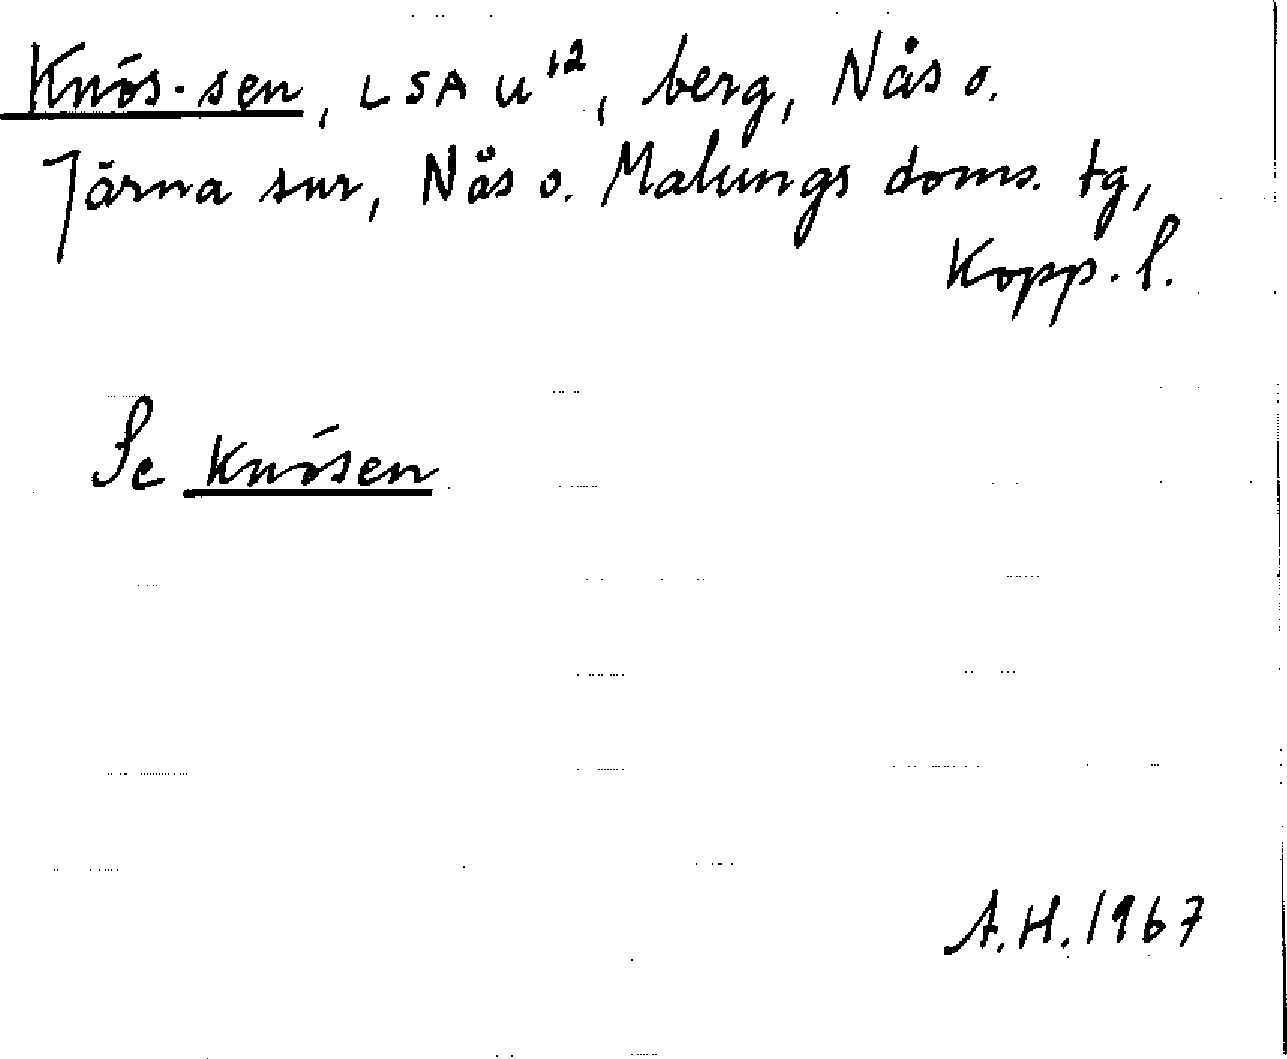 Knös-sen, LSA U¹², berg, Nås o.
Järna snr, Nås o. Malungs doms. tg,
Kopp. l.
Se Knösen
A.H. 1967